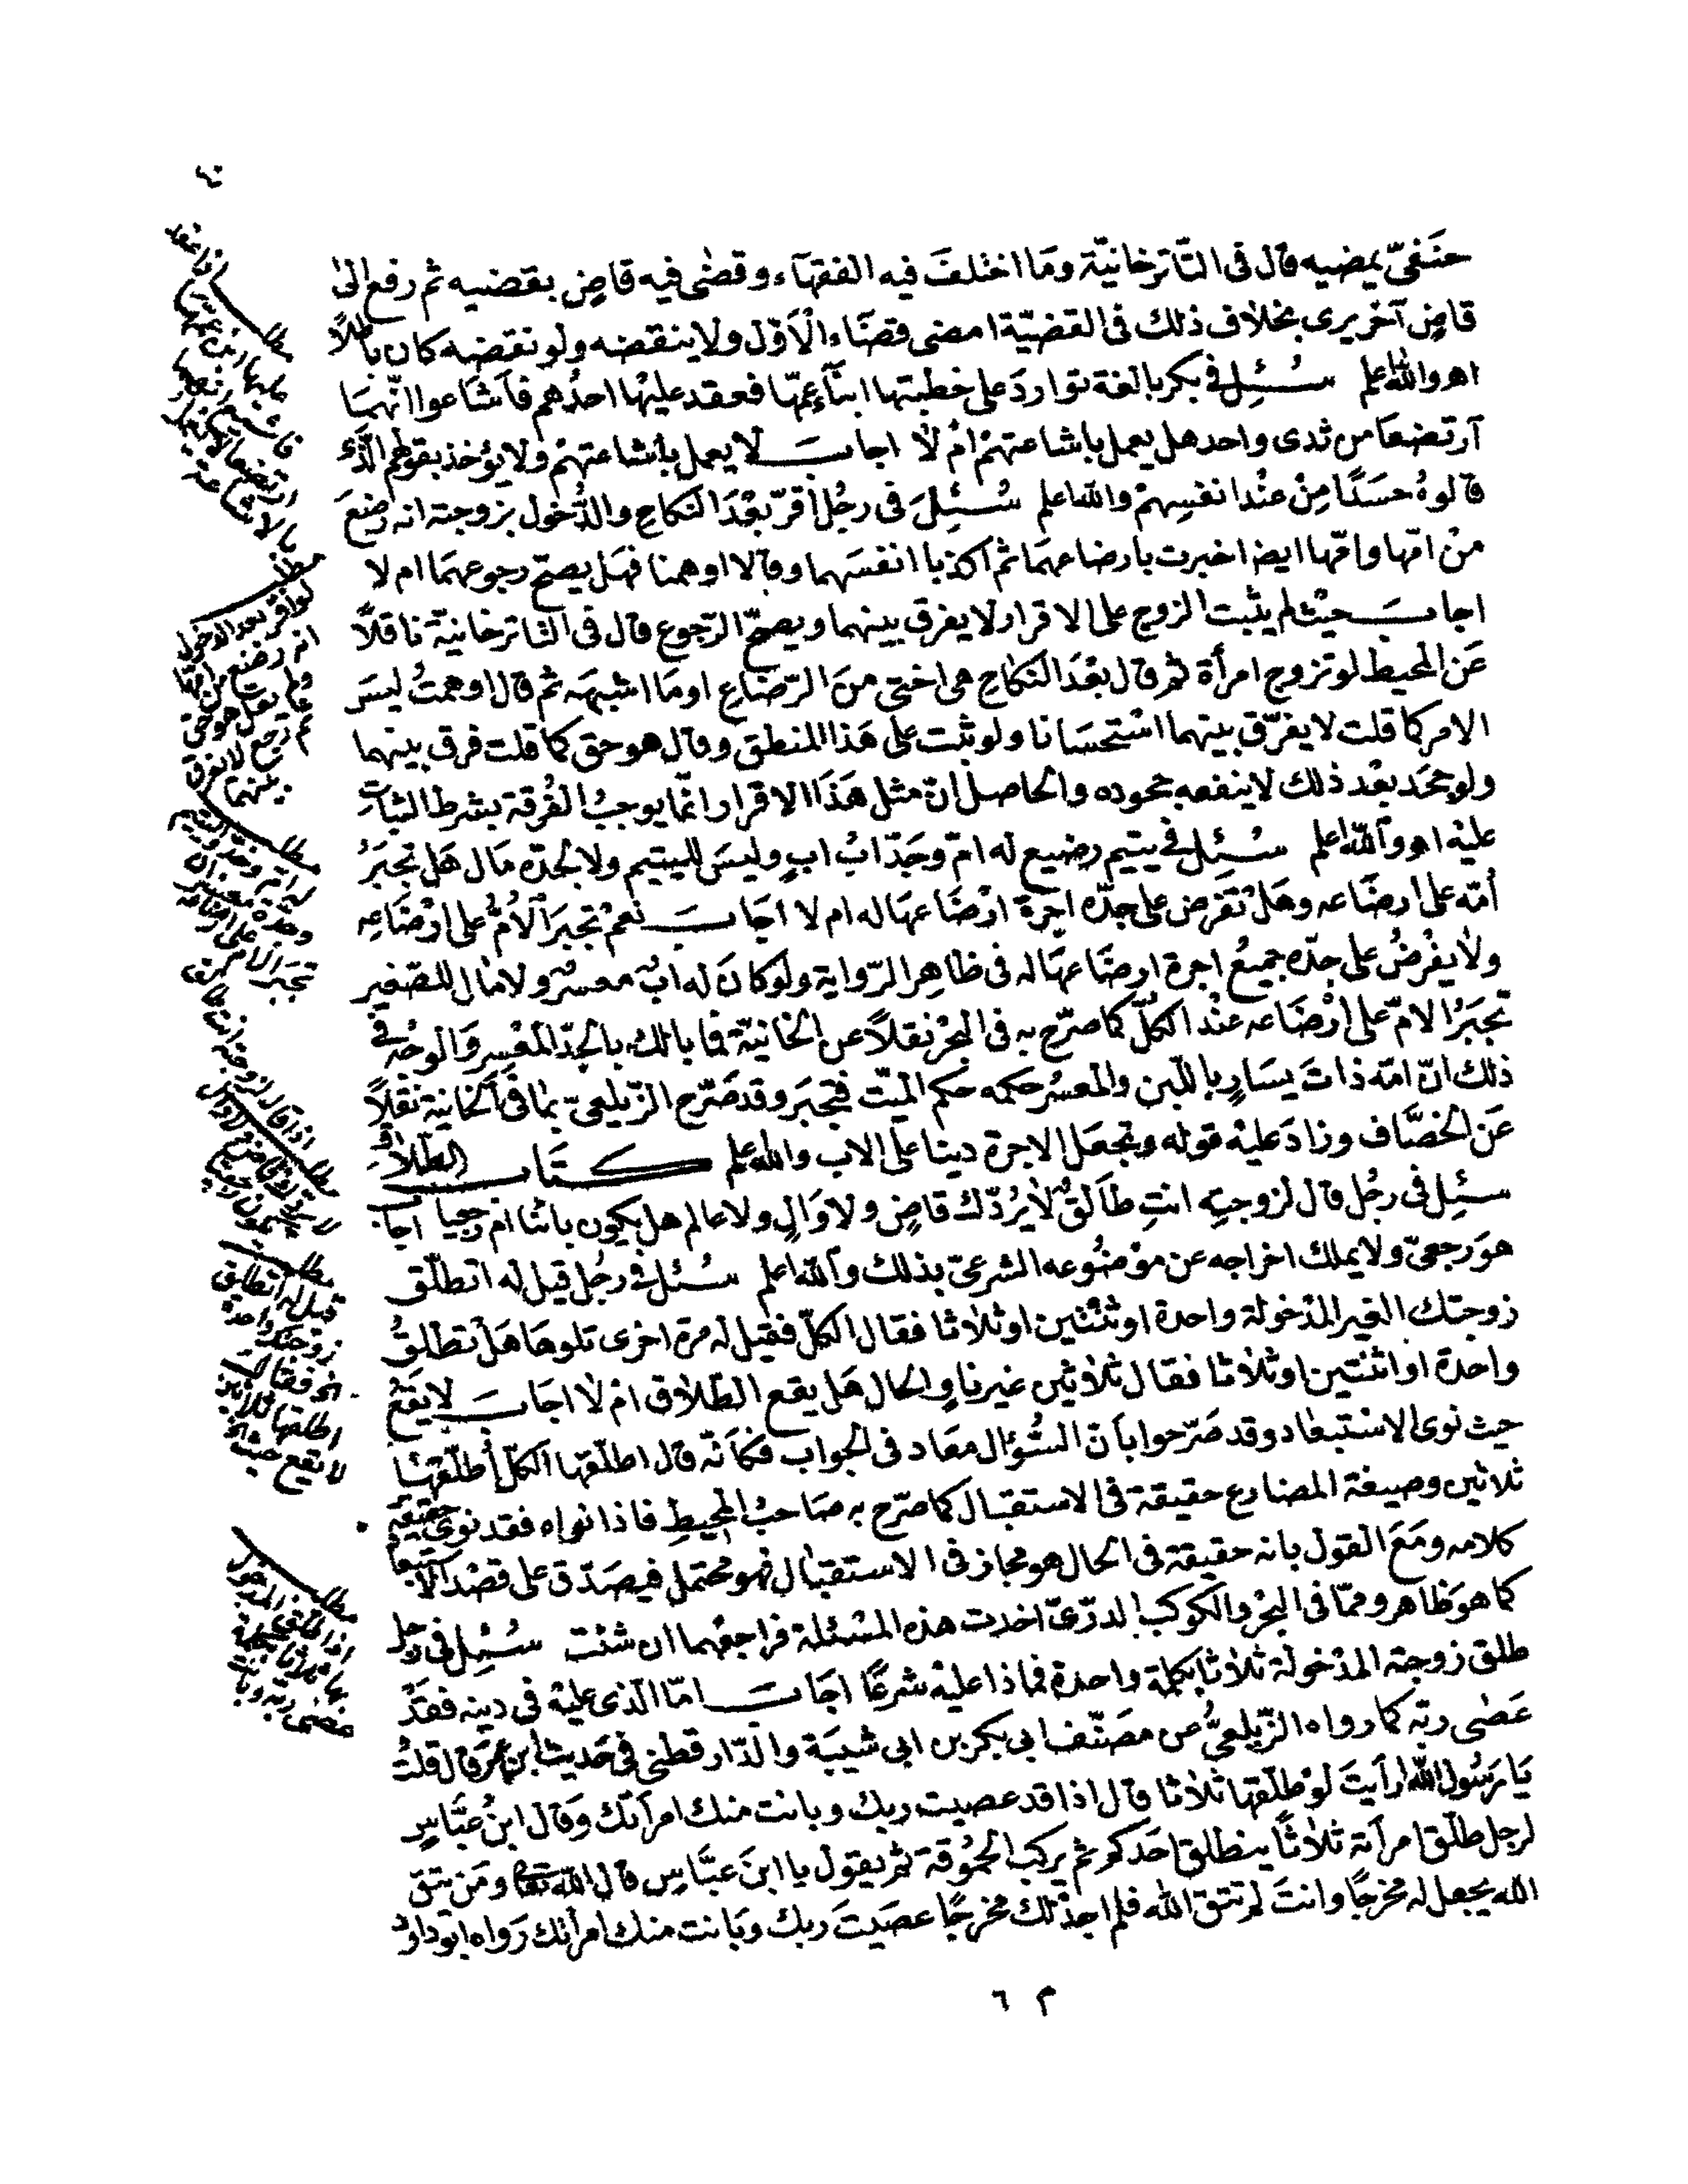 حنفيّ يمضيه قال فى التّاترخانيّة وما اختلف فيه الفقهآء وقضٰى فيه قاضٍ بقضيه ثم رفع الىٰ
قاضٍ آخر يرى بخلاف ذلك فى القضيّة امضى قضآء الْاَوّل ولا ينقضه ولو نقضه كان باطلاً
اهـ والله اعلم سُئِل فى بكر بالغة توارد على خطبتها ابنآء عمّها فعقد عليْها احدُهم فآشاعوا انّهما
آرتضعا من ثدى واحد هل يعمل باشاعتهمْ امْ لا اجاب لا يعمل باشاعتهمْ ولا يؤخذ بقولهم الّذى
قالوهُ حسَدًا مِنْ عنْد انفسِهمْ والله اعلم سُئِلَ فى رجُل أقرّ بعْدَ النكاح والدُّخول بزوجته انه رضع
منْ امّها وامّها ايضا اخبرت بارضاعهما ثم اكذبا انفسَهما وقالا اوهمنا فهَل يصحّ رجوعهمَا ام لا
اجابَ حيْث لم يثبت الزوج على الاقرار لا يفرق بينهما ويصحّ الرّجوع قال فى التاترخانية ناقلاً
عَن المحيط لو تزوج امرأة ثم قال بعْدَ النكاح هى اختى منَ الرّضاع او مَا اشبهه ثم قال اوهمتُ ليسَ
الامر كما قلت لا يفرّق بينهما استْحسَانا ولو ثبت على هَذا المنطق وقال هو حق كما قلت فرق بينهما
ولو جحَد بعْد ذلك لا ينفعه جحوده والحاصل انّ مثل هَذَا الاقرار انمّا يوجبُ الفُرقة بشرط الثبات
عليْه اهـ وآلله اعلم سُئِل فى يتيم رضيع له امّ وجَدّ ابُ ابٍ وليسَ لليتيم ولا لجدّه مَال هَل تجبَرُ
أمّه على ارضَاعه وهَلْ تفرض على جدّه اجرة ارْضَاعهَا له ام لا اجَابَ نعمْ تجبَر آلْاُمُّ على ارْضَاعِه
ولا يفْرضُ على جدّه جميعُ اجرة ارضَاعهَا له فى ظاهِر الرّواية ولو كانَ له ابٌ معسرٌ ولا مال للصّغير
تجبَرُ الامّ على ارْضَاعه عنْد الكلّ كما صرّح به فى البحْر نقلاً عن الخانيّة فما بالك بالجدّ المعْسِر وَالوجْه فى
ذلك انّ امّه ذاتَ يسَارٍ باللّبن والمعسرُ حكمه حكم الميّت فتجبَر وقد صَرّح الزّيلعىّ بما فى آلخانية نقلاً
عَن الخصَّاف وزادَ عليْه قوله وتجعَل الاجرة دينا على الاب والله اعلم كتاب الطّلاق
سئِل فى رجُل قال لزوجته انتِ طاَلقٌ لا يُردّك قاضٍ ولا وَالٍ ولا عالم هل يكون بائنا ام رجعيا اجاب
هوَ رجعىّ ولا يملك اخراجه عن موْضُوعه الشرعىّ بذلك وآلله اعلم سُئل فى رجُل قيل له اتطلّق
زوجتك الغير المدْخولة واحدة او ثنْتين او ثلاثا فقال الكلّ فقيل له مرة اخرى تلوهَا هَلْ تطلقُ
واحدة او اثنتين او ثلاثا فقال ثلاثين غير ناوٍ الحال هَل يقع الطّلاق امْ لا اجابَ لا يقعُ
حيث نوى الاستْبعاد وقد صَرّحوا باَنّ السُّؤال معَاد فى الجواب فكاَنّه قال اطلّقها الكلّ أطلّقها
ثلاثين وصيغة المضارع حقيقة فى الاستقبال كما صرّح به صَاحبُ المحيطِ فاذا نواه فقد نوى حقيقة
كلامه ومَعَ القول بانه حقيقة فى الحال هو مجاز فى الاستقبال فهو محتمل فيصَدّق على قصْد
كما هوَ ظاهر وممّا فى البحْر والكوكب الدرّىّ اخذت هذه المسْئلة فراجعْهما ان شئت سُئِل فى رجل
طلق زوجته المدْخولة ثلاثا بكلمة واحدة فماذا عليْه شرعًا اجَابَ امّا الّذى عليْه فى دينه فقدْ
عَصٰى ربّه كما رواه الزّيلعىُّ عن مصَنّف ابى بكر بن ابى شيبَة والدّارقطنى فى حَديث ابن عمَر قال قلتُ
يَا رسُول الله ارأيتَ لوْ طلّقها ثلاثا قال اذا قد عصيت ربك وبانت منك امرأتك وَقال ابنُ عبَّاسٍ
لرجل طلّق امرأته ثلاثاً ينطلق احَدكم ثم يركب الحمُوقة ثم يقول يا ابنَ عبَّاسٍ قال الله تعٰا ومَن يتق
الله يجعل له مخرجًا وانتَ لم تتق الله فلم اجدْ لك مخرجًا عصَيتَ ربك وبَانت منك امرأتك رَواه ابو داود
لو اقر بعد الدخول
انه رضع من امها
ثم رجع لا يفرق
بينهما
تجبر الام
مطلب
قيل له اتطلق
زوجتك واحدة
لا يقع حيث
عصى ربه وبانت
م ٦